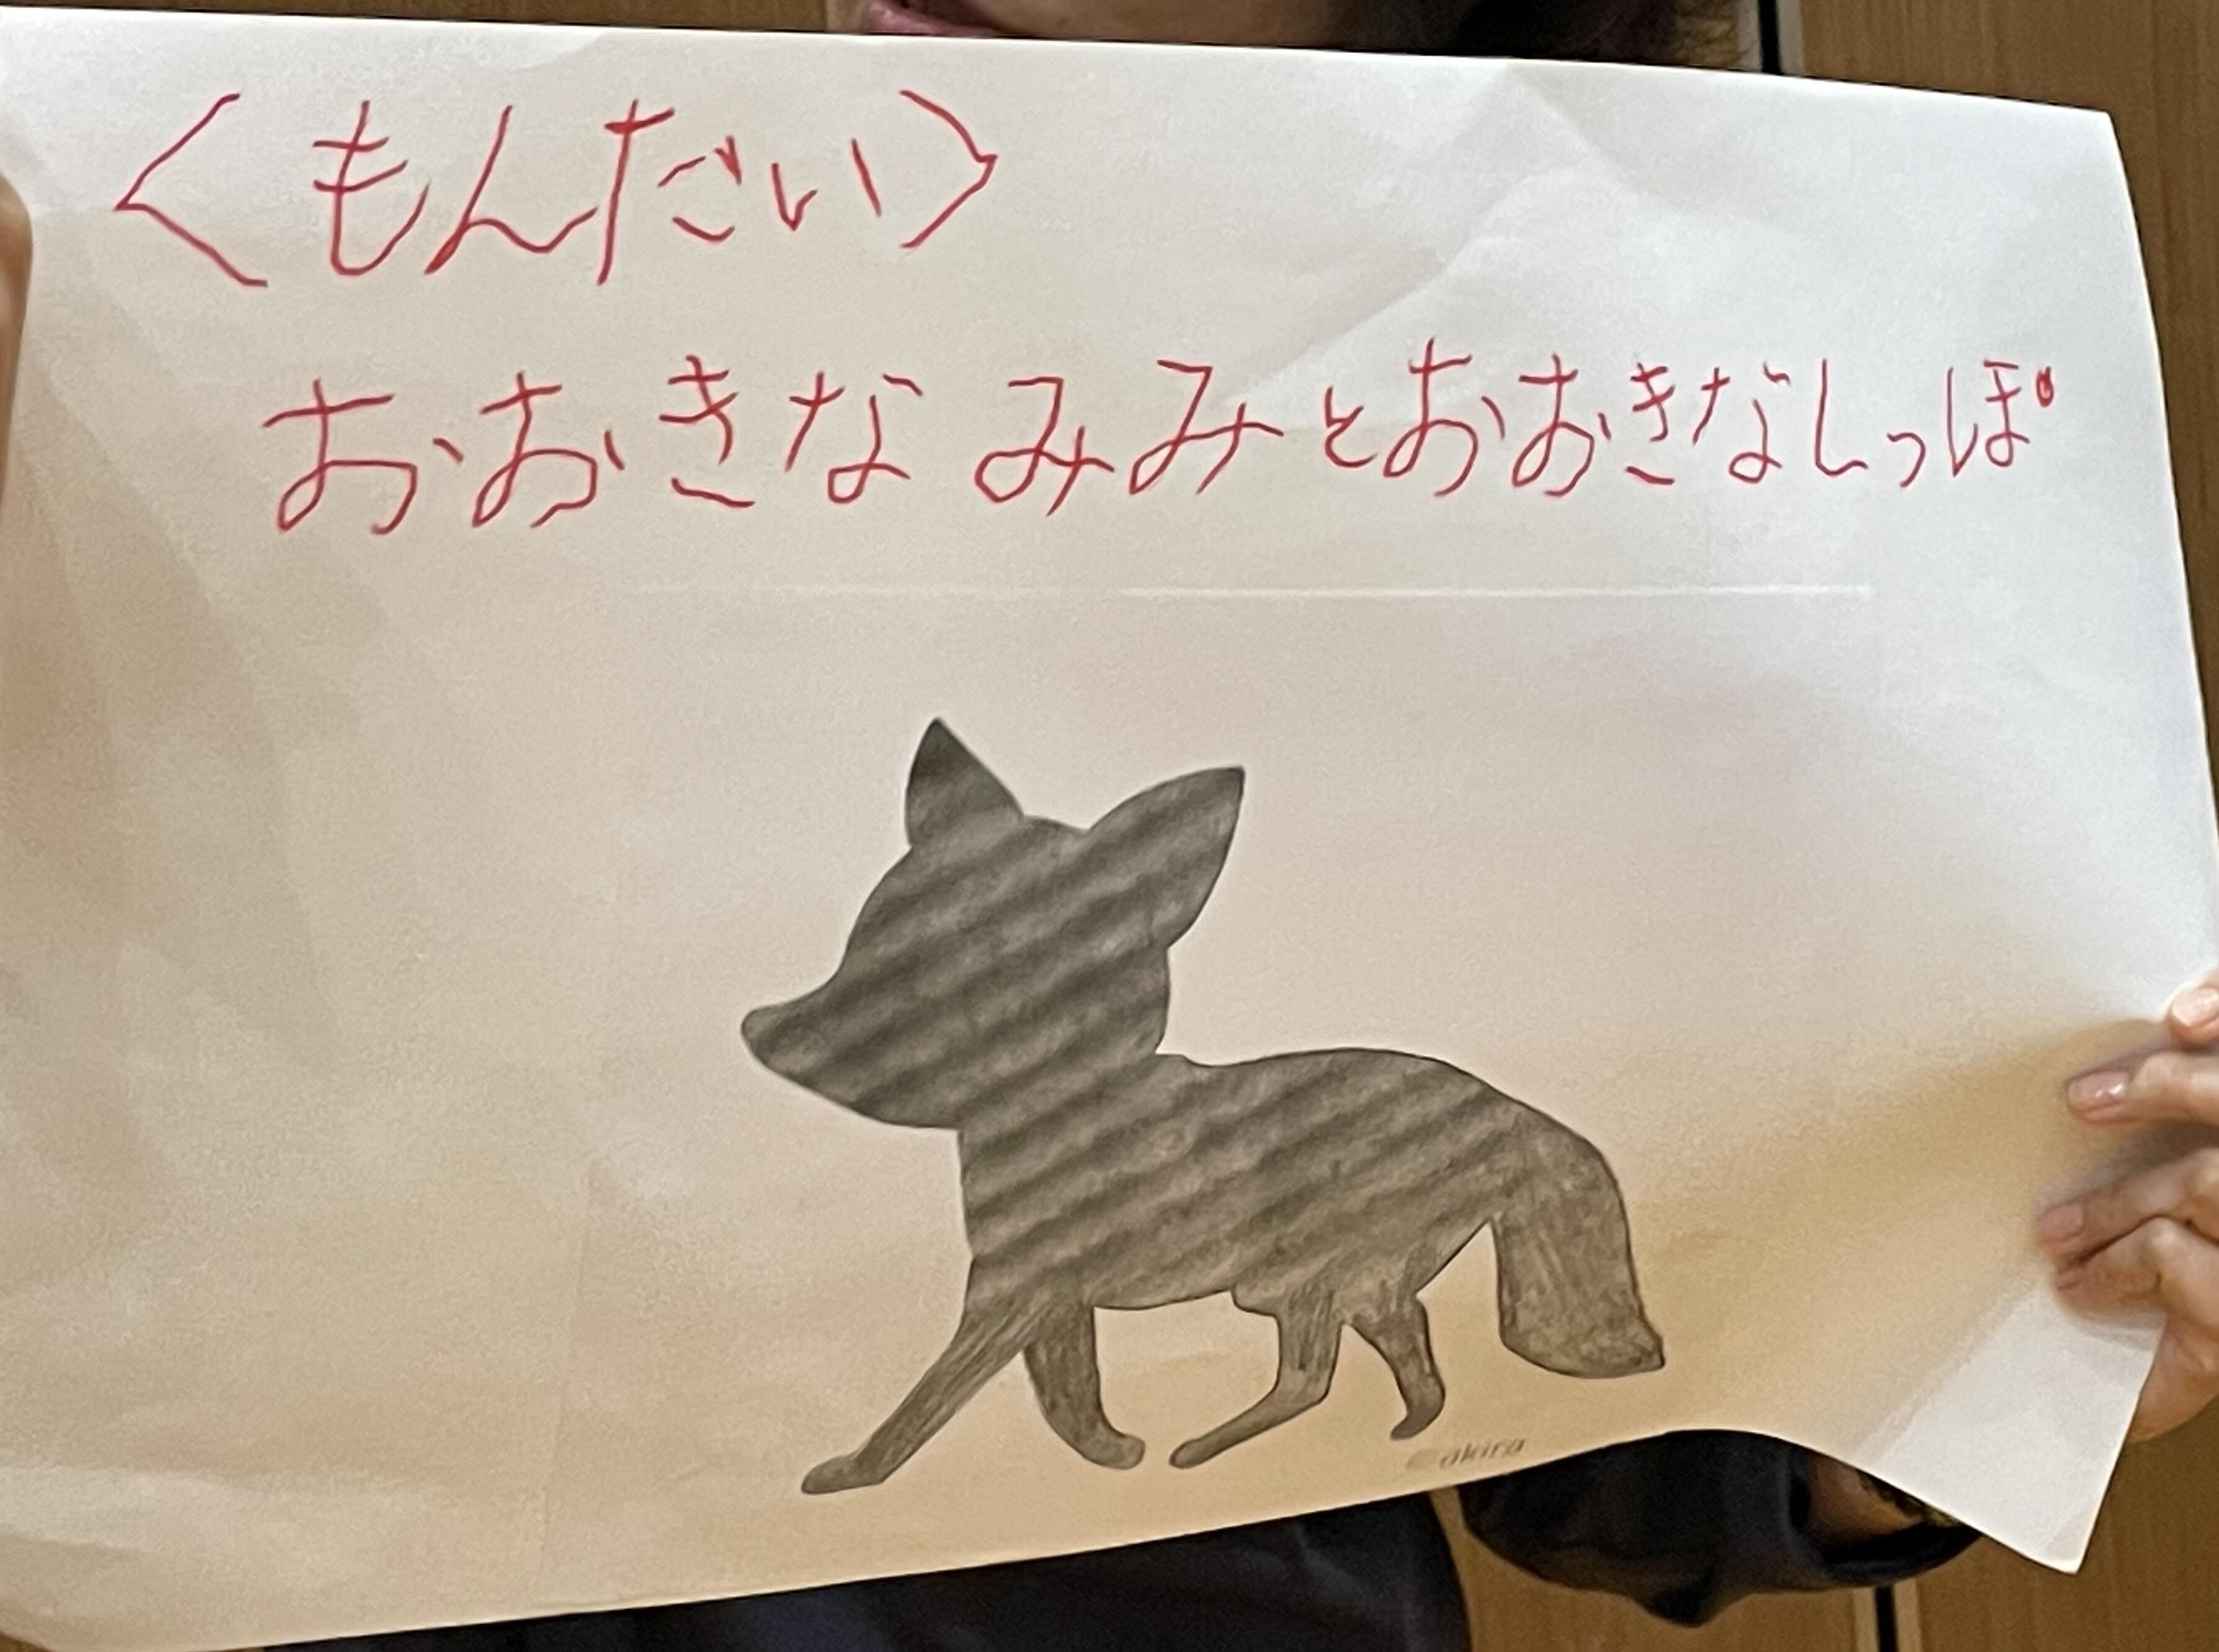 <もんだい>
おおきな みみとおおきなしっぽ
©akira